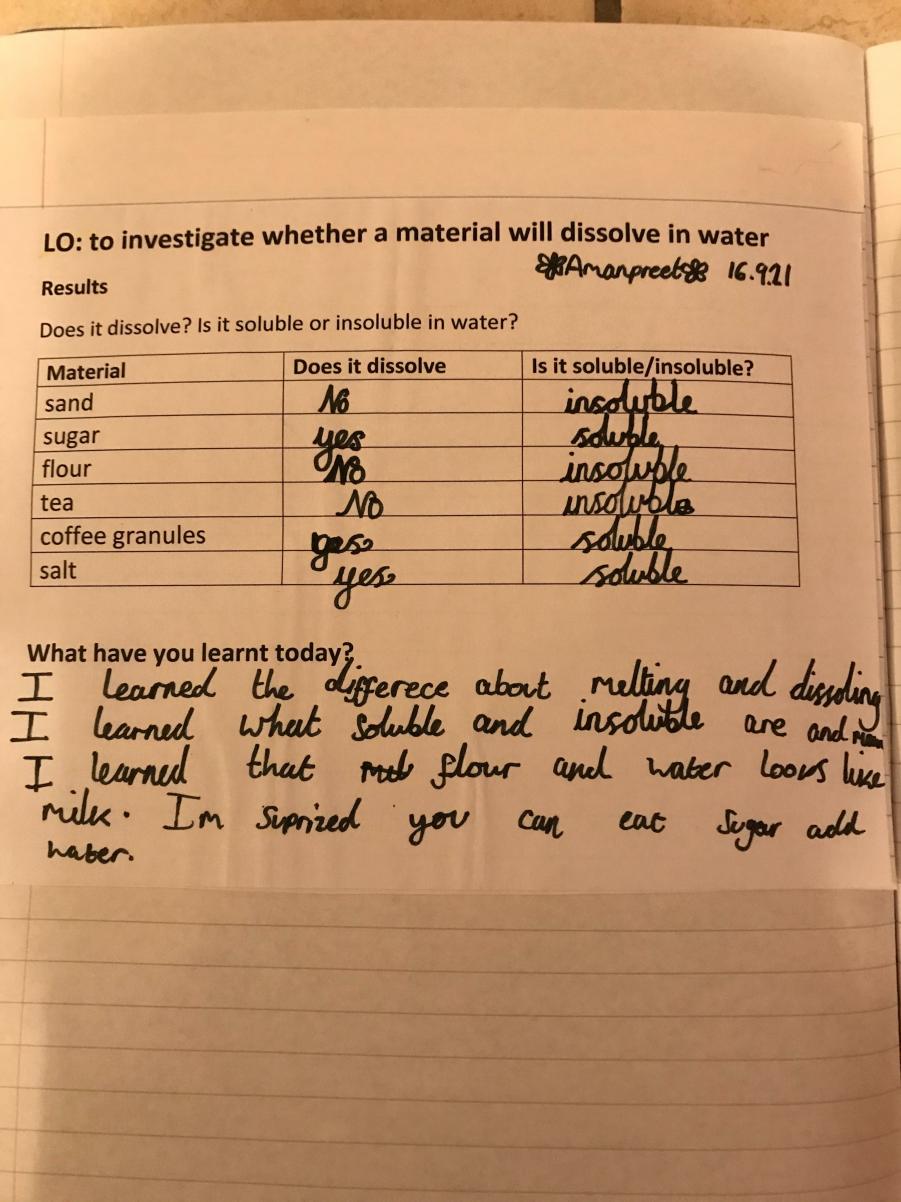 LO: to investigate whether a material will dissolve in water
Amanpreet 16.9.21
Results
Does it dissolve? Is it soluble or insoluble in water?
Material Does it dissolve Is it soluble/insoluble?
sand No insoluble
sugar yes soluble
flour No insoluble
tea No insoluble
coffee granules yes soluble
salt yes soluble
What have you learnt today?
I learned the differece about melting and dissoling
I learned what soluble and insoluble are and
I learned that flour and water looks like
milk. Im suprized you can eat sugar add
water.